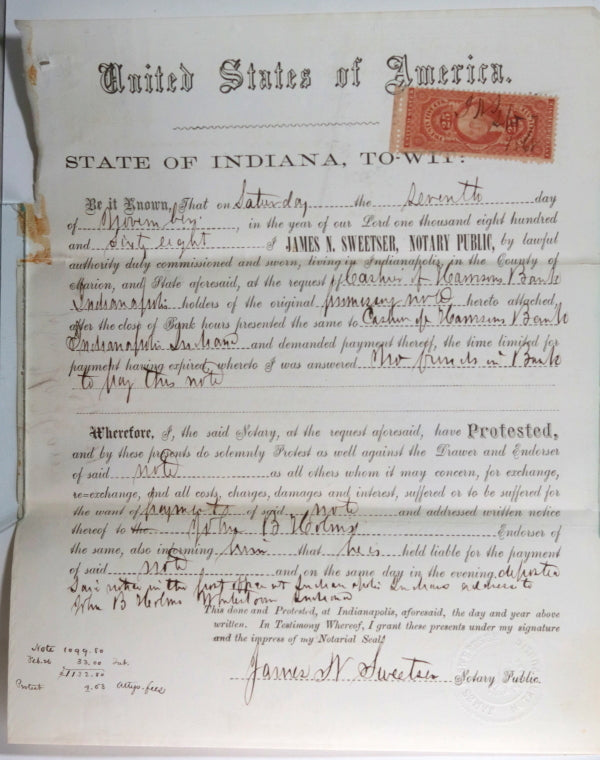 United States of America.
STATE OF INDIANA, TO-WIT:
25 25
Be it Known, That on Saturday the Seventh day
of November, in the year of our Lord one thousand eight hundred
and Sixty eight I JAMES N. SWEETSER, NOTARY PUBLIC, by lawful
authority duly commissioned and sworn, living in Indianapolis, in the County of
Marion, and State aforesaid, at the request of Cashier of Harrisons Bank
Indianapolis holders of the original promissory note hereto attached,
after the close of Bank hours presented the same to Cashier of Harrisons Bank
Indianapolis Indiana and demanded payment thereof, the time limited for
payment having expired, whereto I was answered No funds in Bank
to pay this note
Wherefore, I, the said Notary, at the request aforesaid, have Protested,
and by these presents do solemnly Protest as well against the Drawer and Endorser
of said note as all others whom it may concern, for exchange,
re-exchange, and all costs, charges, damages and interest, suffered or to be suffered for
the want of payment of said note and addressed written notice
thereof to the John B Holmes Endorser of
the same, also informing him that he is held liable for the payment
of said note and on the same day in the evening, deposited
said notice in the post office at Indianapolis Indiana address to
John B Holms Indiana
This done and Protested, at Indianapolis, aforesaid, the day and year above
written. In Testimony Whereof, I grant these presents under my signature
and the impress of my Notarial Seal.
James N Sweetser Notary Public.
Note 1099.50
Feb. 26 33.00 Int.
1132.50
Protest 2.03 Attys. fees